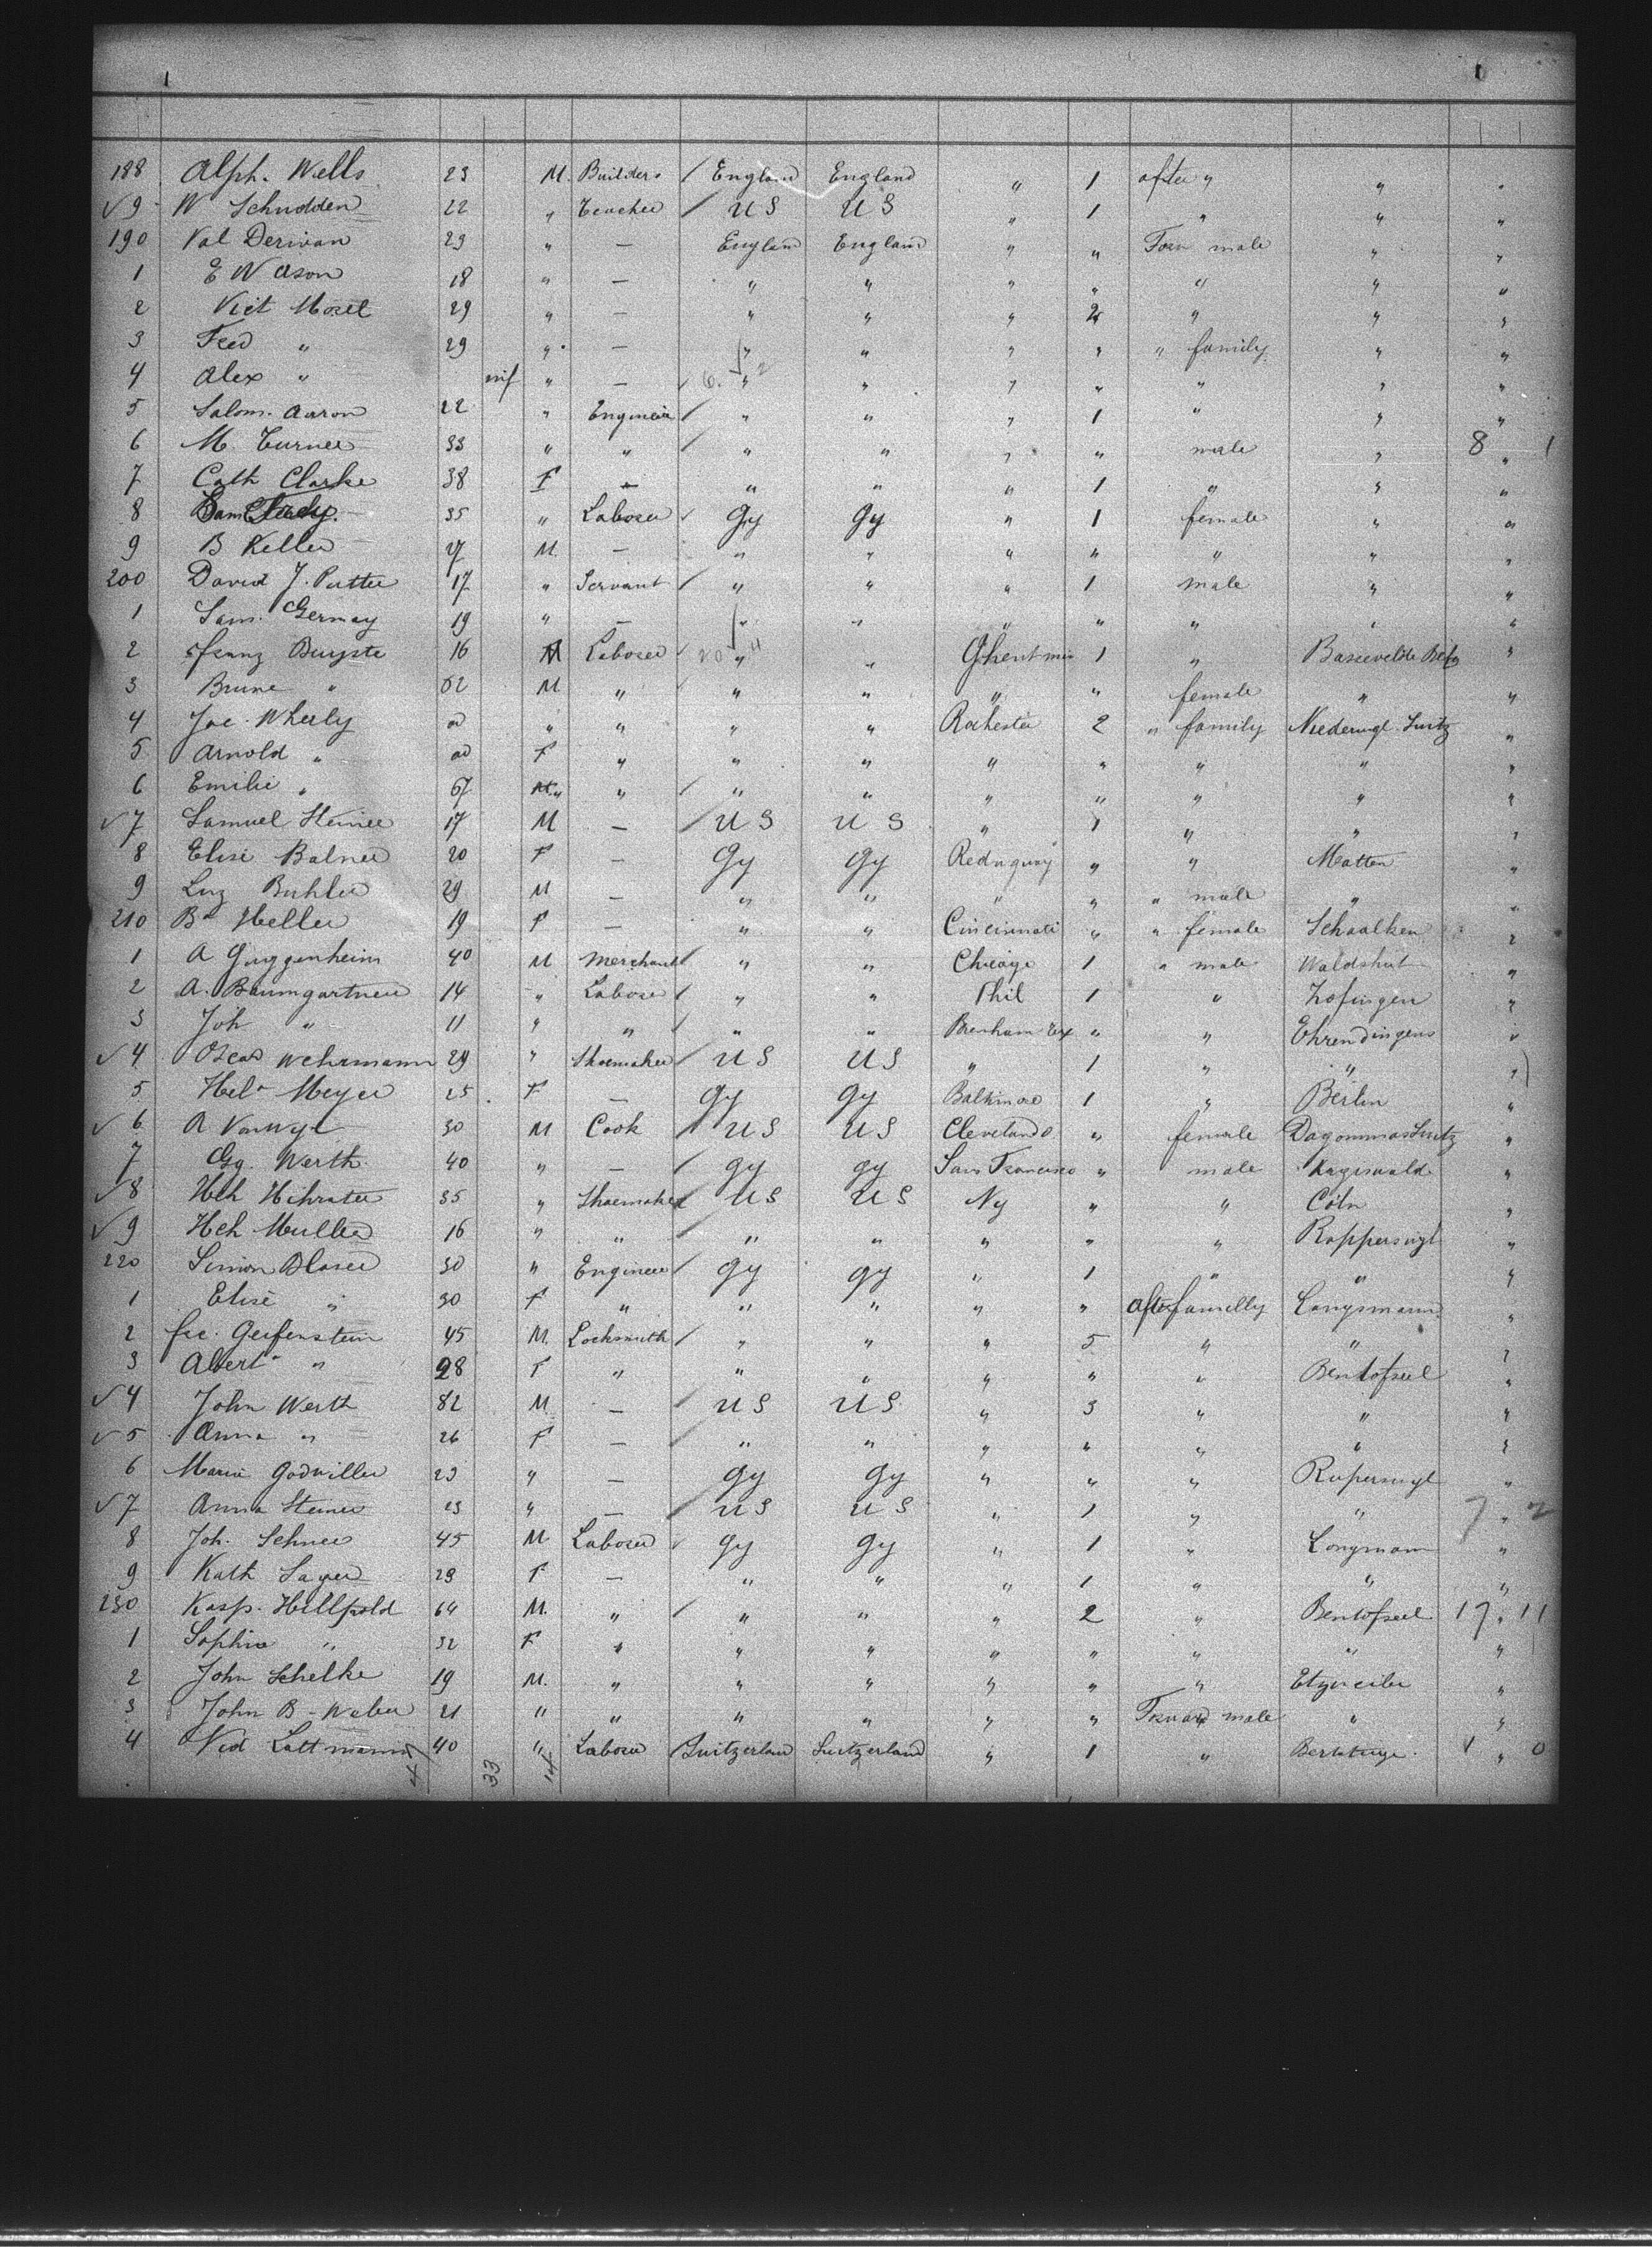 188 Alph. Wells 23 M. Builders / England England " 1 after " " "
✓9 W Schudden 22 " Teacher / US US " 1 " " "
190 Val Derivan 23 " — England England " " Forw male " "
1 E Wason 18 " — " " " " " " "
2 Viet Mosel 29 " — " " " 2 " " "
3 Fred " 29 " — " " " " " family " "
4 Alex " inf " — 6. " 2 " " " " " "
5 Salom. Aaron 22 " Engineer / " " " 1 " " "
6 M. Turner 33 " " / " " " " male " 8 " 1
7 Cath Clarke 38 F — " " " 1 " " "
8 35 " Laborer Gy Gy " 1 female " "
9 B Keller 27 M. — " " " " " " "
200 David J. Putter 17 " Servant / " " " 1 male " "
1 Sam. Germay 19 " — " " " " " " "
2 Franz Buyste 16 M Laborer 20 " 4 " Ghent 1 " Bassevelde "
3 Brune " 62 M " " " " " female " "
4 Jac. Wherly ad " " " " Rochester 2 " family "
5 Arnold " ad F " " " " " " " "
6 Emilie " 67 M " " / " " " " " " "
✓7 Samuel Steiner 17 M — / US US " 1 " " "
8 Elise Balner 20 F — Gy Gy " " Matten "
9 Luz Buhler 29 M — " " " " " male " "
210 Ba Heller 19 F — " " Cincinnati " " female Schaalken "
1 A Guggenheim 40 M. Merchant " " Chicago 1 " male Waldshut "
2 A. Baumgartner 14 " Laborer / " " Phil 1 " Zofingen "
3 Joh " 11 " " / " " Brenham Tex " " Ehrendingen "
✓4 Oscar Wehrmann 29 " Shoemaker / US US " 1 " " "
5 Hela Meyer 25 F — Gy Gy Baltimore 1 " Berlin "
✓6 A Vonwyl 30 M Cook / US US Cleveland " female "
7 Gg. Werth 40 " — Gy Gy San Francisco " male "
✓8 Hch 35 " Shoemaker US US Ny " " Cöln "
✓9 Hch Muller 16 " " / " " " " " Rapperswyl "
220 Simon Blaser 30 " Engineer / Gy Gy " 1 " " "
1 Elise " 30 F " " " " " After familly Langsmann "
2 45 M. Locksmith / " " " 5 " " "
3 Albert " 28 F " " " " " " Bentofseel "
✓4 John Werth 82 M — / US US " 3 " " "
✓5 Anna " 26 F — / " " " " " " "
6 Maria Godwiller 23 " — Gy Gy " " " "
✓7 Anna Steiner 23 " — / US US " 1 " " 7 " 2
8 Joh. Schnee 45 M Laborer Gy Gy " 1 " Longmann "
9 Kath Sager 28 F — " " " 1 " " "
230 Kasp. Hillpold 64 M. " / " " " 2 " Bentofseel 17 " 11
1 Sophia " 32 F " " " " " " " "
2 John Schelke 19 M. " " " " " " Etzweiler "
3 John B. Weber 21 " " " " " " Forward male " "
4 Ned Lattmann 40 " Laborer / Switzerland Switzerland " 1 " 1 " 0
47 33 14